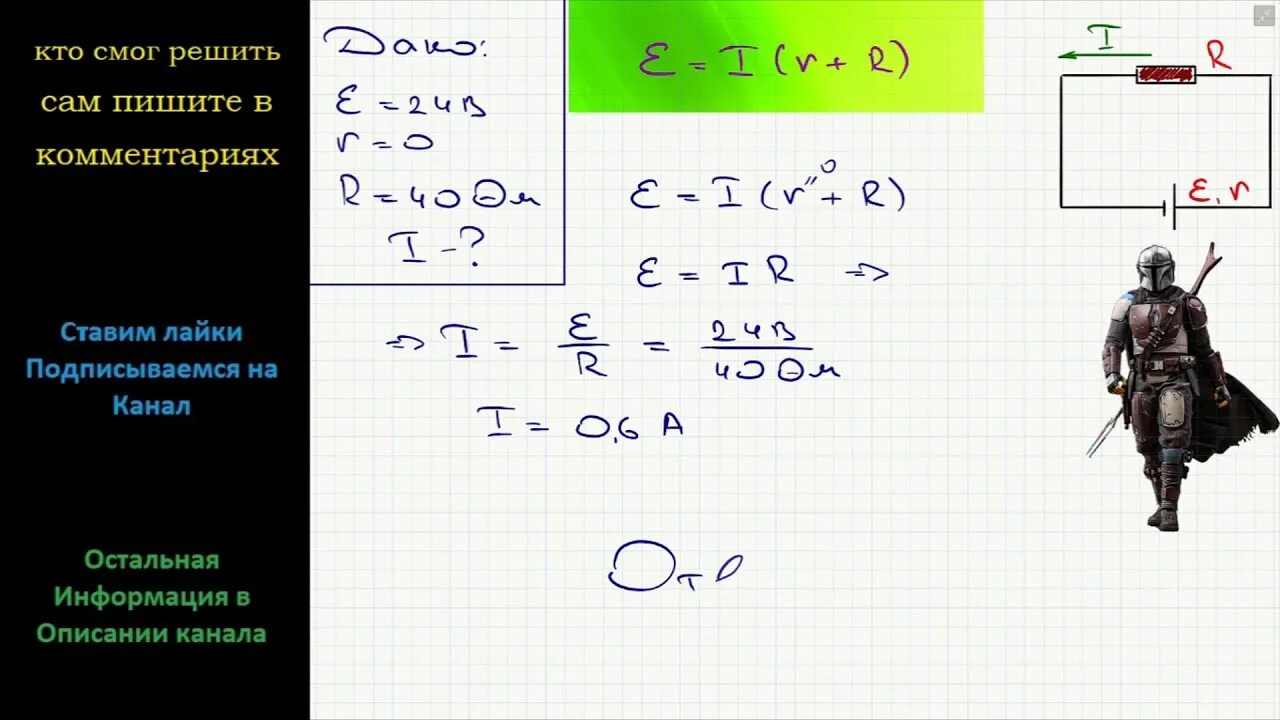 кто смог решить
сам пишите в
комментариях
Ставим лайки
Подписываемся на
Канал
Остальная
Информация в
Описании канала
Дано:
Ɛ = 24 В
r = 0
R = 40 Ом
I - ?
Ɛ = I (r + R)
Ɛ = I (r'' ⁰ + R)
Ɛ = I R =>
=> I = Ɛ/R = 24 В/40 Ом
I = 0,6 А
От
I
R
Ɛ, r